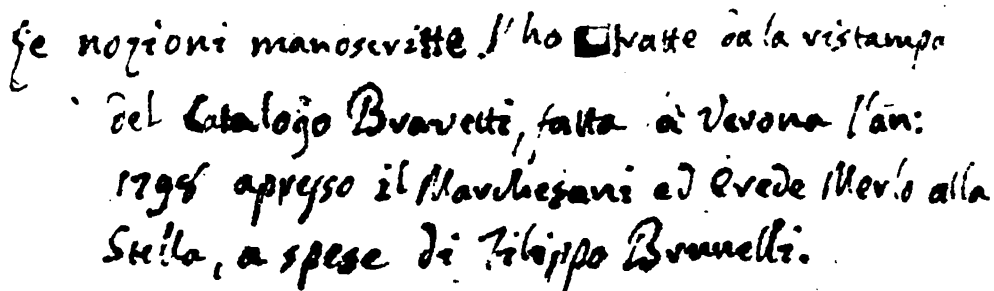 Le nozioni manoscritte l'ho tratte da la ristampa
del Catalogo Bravetti, fatta à Verona l'an:
apresso il Marchesani ed Erede Merlo alla
Stella, a spese di Filippo Brunelli.